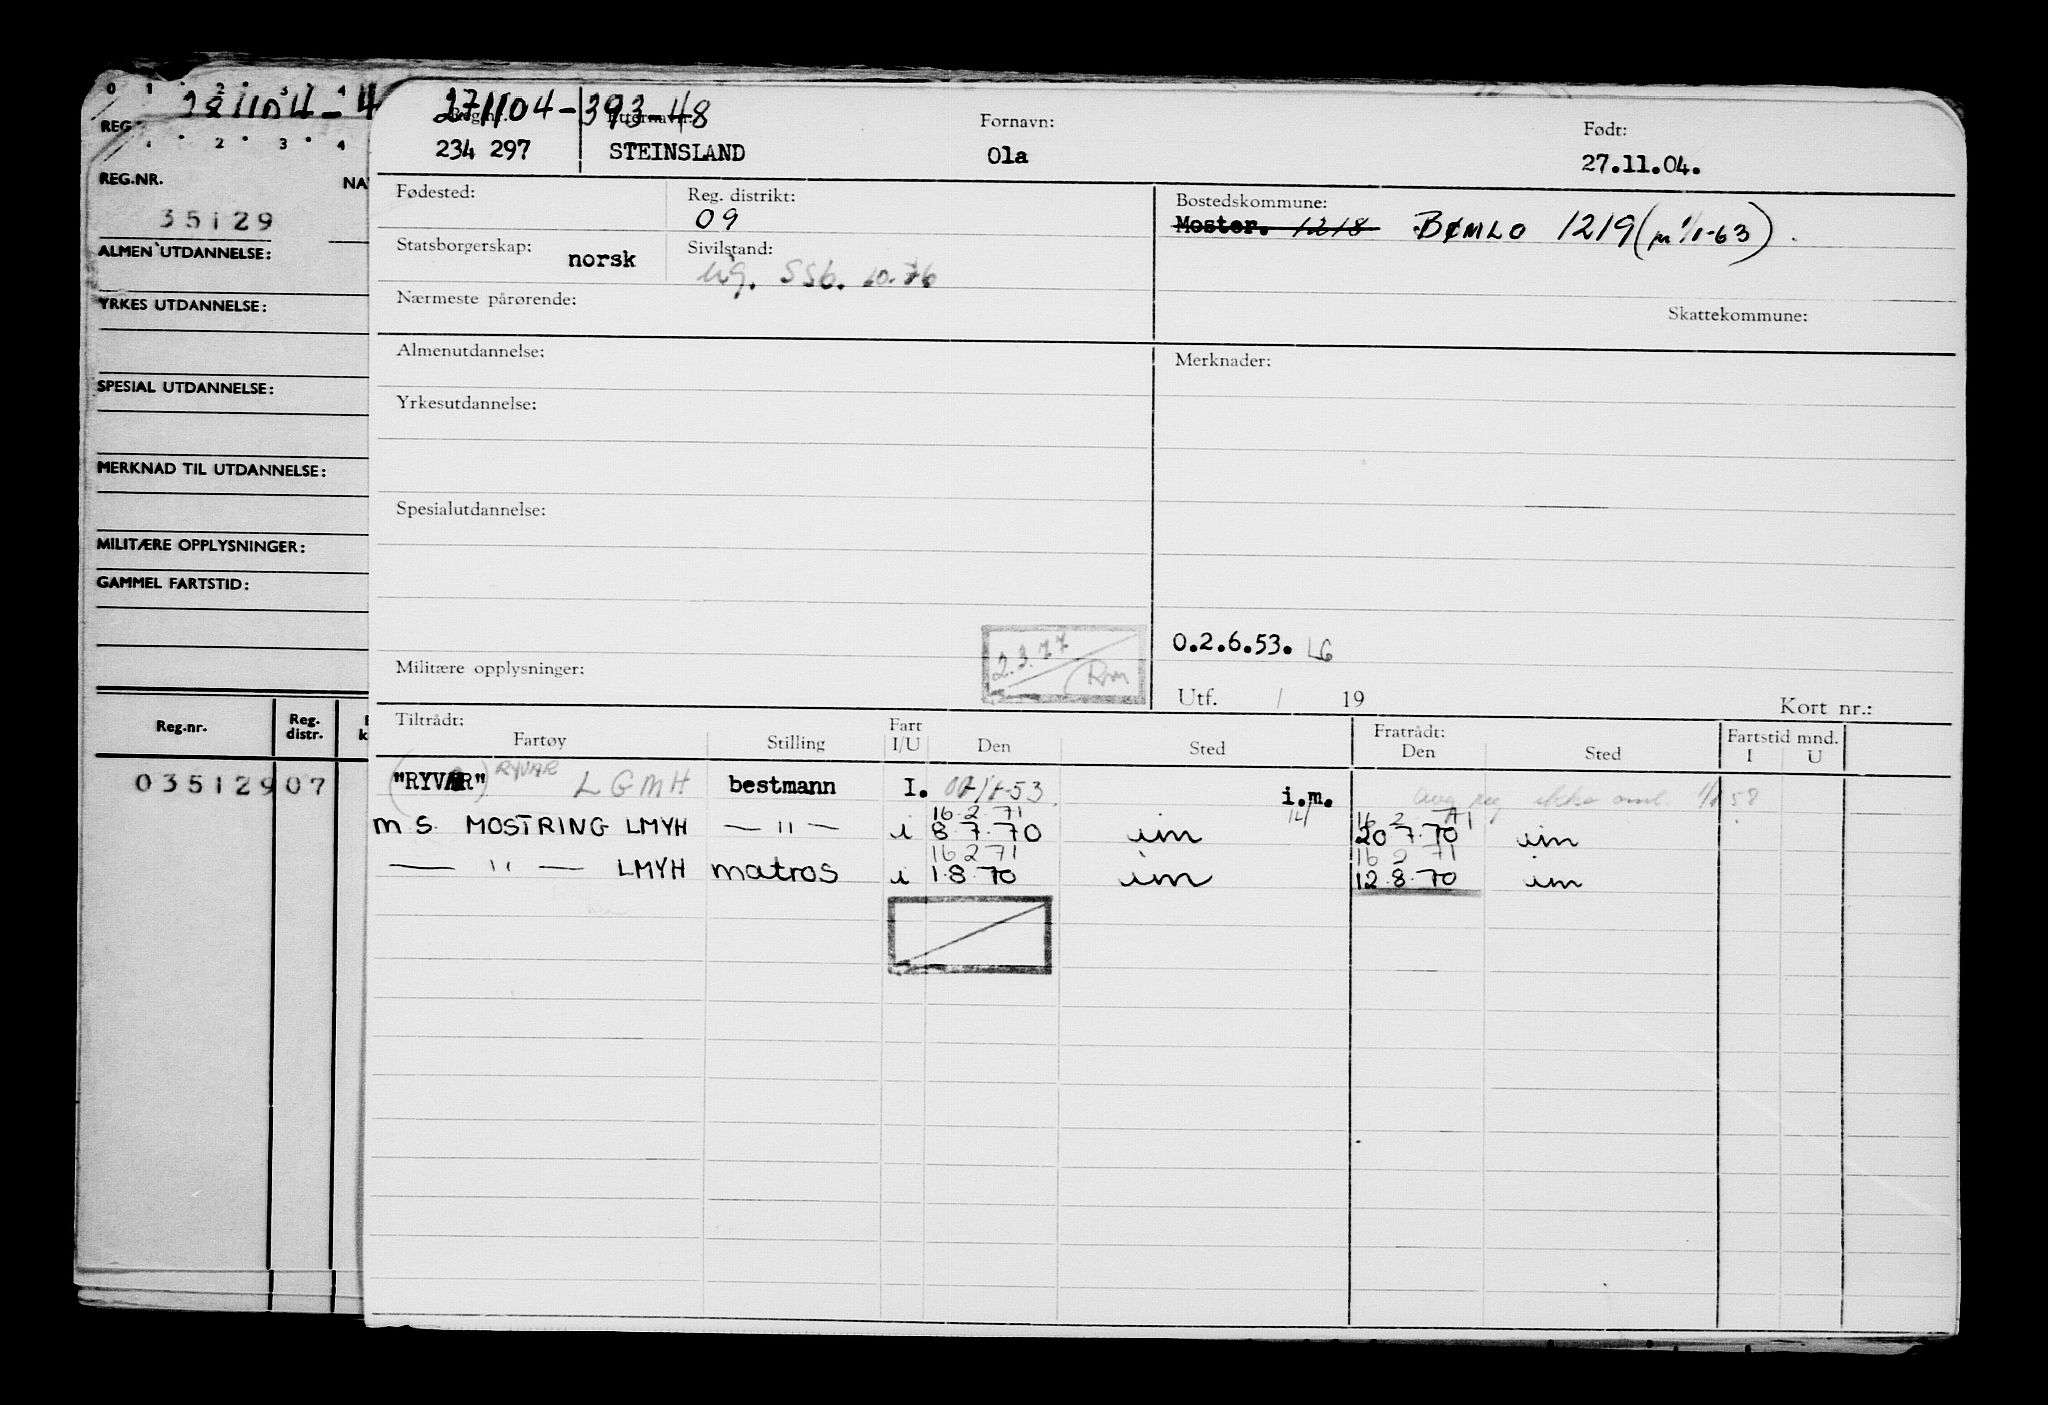 0 1 2 3 4
281104-4
REG
1 2 3 4
REG.NR. NA
35129
ALMEN UTDANNELSE:
YRKES UTDANNELSE:
SPESIAL UTDANNELSE:
MERKNAD TIL UTDANNELSE:
MILITÆRE OPPLYSNINGER:
GAMMEL FARTSTID:
Reg.nr. Reg. distr.
035129 07
271104-393-48
Reg.nr. Etternavn: Fornavn: Født:
234 297 STEINSLAND Ola 27.11.04.
Fødested: Reg. distrikt: Bostedskommune:
09 Moster. 1218 BØMLO 1219 ( 1/1-63)
Statsborgerskap: norsk Sivilstand:
ug. SSb. 10.76
Nærmeste pårørende: Skattekommune:
Almenutdannelse: Merknader:
Yrkesutdannelse:
Spesialutdannelse:
0.2.6.53. LG
2.3.77
Rm
Militære opplysninger:
Utf. / 19 Kort nr.:
Tiltrådt: Fart Fratrådt: Fartstid mnd.
Fartøy Stilling I/U Den Sted Den Sted I U
"RYVAR" RYVAR LGMH bestmann I. 1-53 i.m. ikke 58
16.2.71 16 2 71
M S. MOSTRING LMYH — " — i 8.7.70 im 20 7.70 im
16 2 71 16 2 71
— " — LMYH matros i 1.8.70 im 12.8.70 im